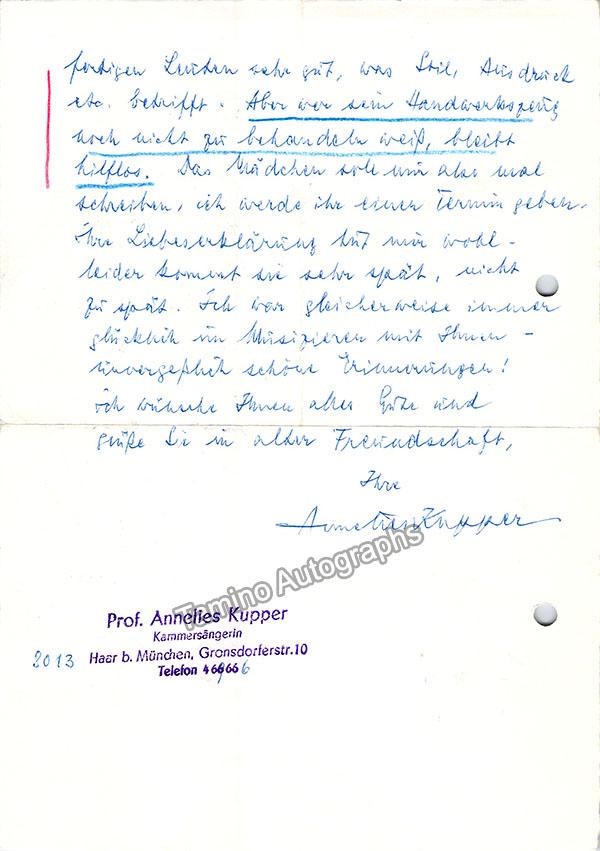 fertigen Leuten sehr gut, was Stil, Ausdruck
etc. betrifft. Aber wer sein Handwerkszeug
noch nicht zu behandeln weiß, bleibt
hilflos. Das Mädchen soll mir also mal
schreiben, ich werde ihr einen Termin geben.
Ihre Liebeserklärung tut mir wohl -
leider kommt sie sehr spät, nicht
zu spät. Ich war gleicherweise immer
glücklich im Musizieren mit Ihnen -
unvergeßlich schöne Erinnerungen!
Ich wünsche Ihnen alles Gute und
grüße Sie in alter Freundschaft,
Ihre
Annelies Kupper
Tamino Autographs
Prof. Annelies Kupper
Kammersängerin
2013 Haar b. München, Gronsdorferstr.10
Telefon 46